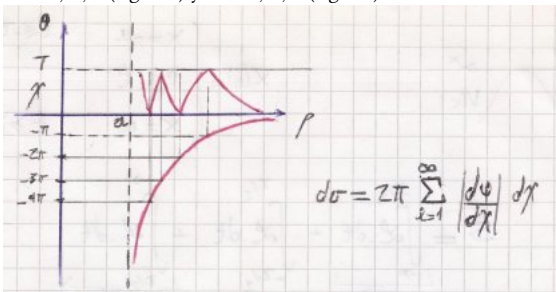 θ
π
χ
a
ρ
-π
-2π
-3π
-4π
dσ = 2π ∑_{i=1}^{∞} |dφ/dχ| dχ